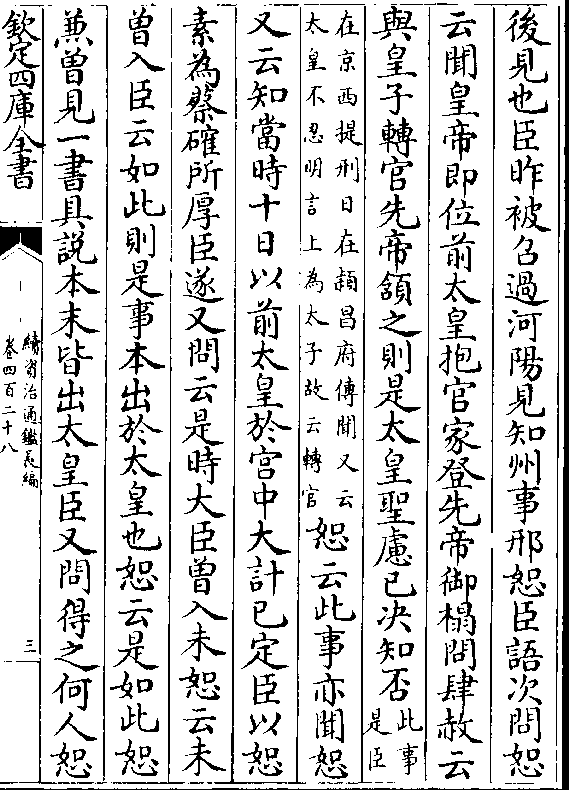 後見也臣昨被召過河陽見知州事邢恕臣語次問恕
云聞皇帝即位前太皇抱官家登先帝御榻問肆赦云
與皇子轉官先帝頷之則是太皇聖慮已决知否此事
是臣
在京西提刑日在潁昌府傳聞又云
太皇不忍明言上為太子故云轉官
恕云此事亦聞恕
又云知當時十日以前太皇於宫中大計已定臣以恕
素為蔡確所厚臣遂又問云是時大臣曾入未恕云未
曾入臣云如此則是事本出於太皇也恕云是如此恕
兼曾見一書具説本末皆出太皇臣又問得之何人恕
欽定四庫全書
續資治通鑑長編
卷四百二十八
三